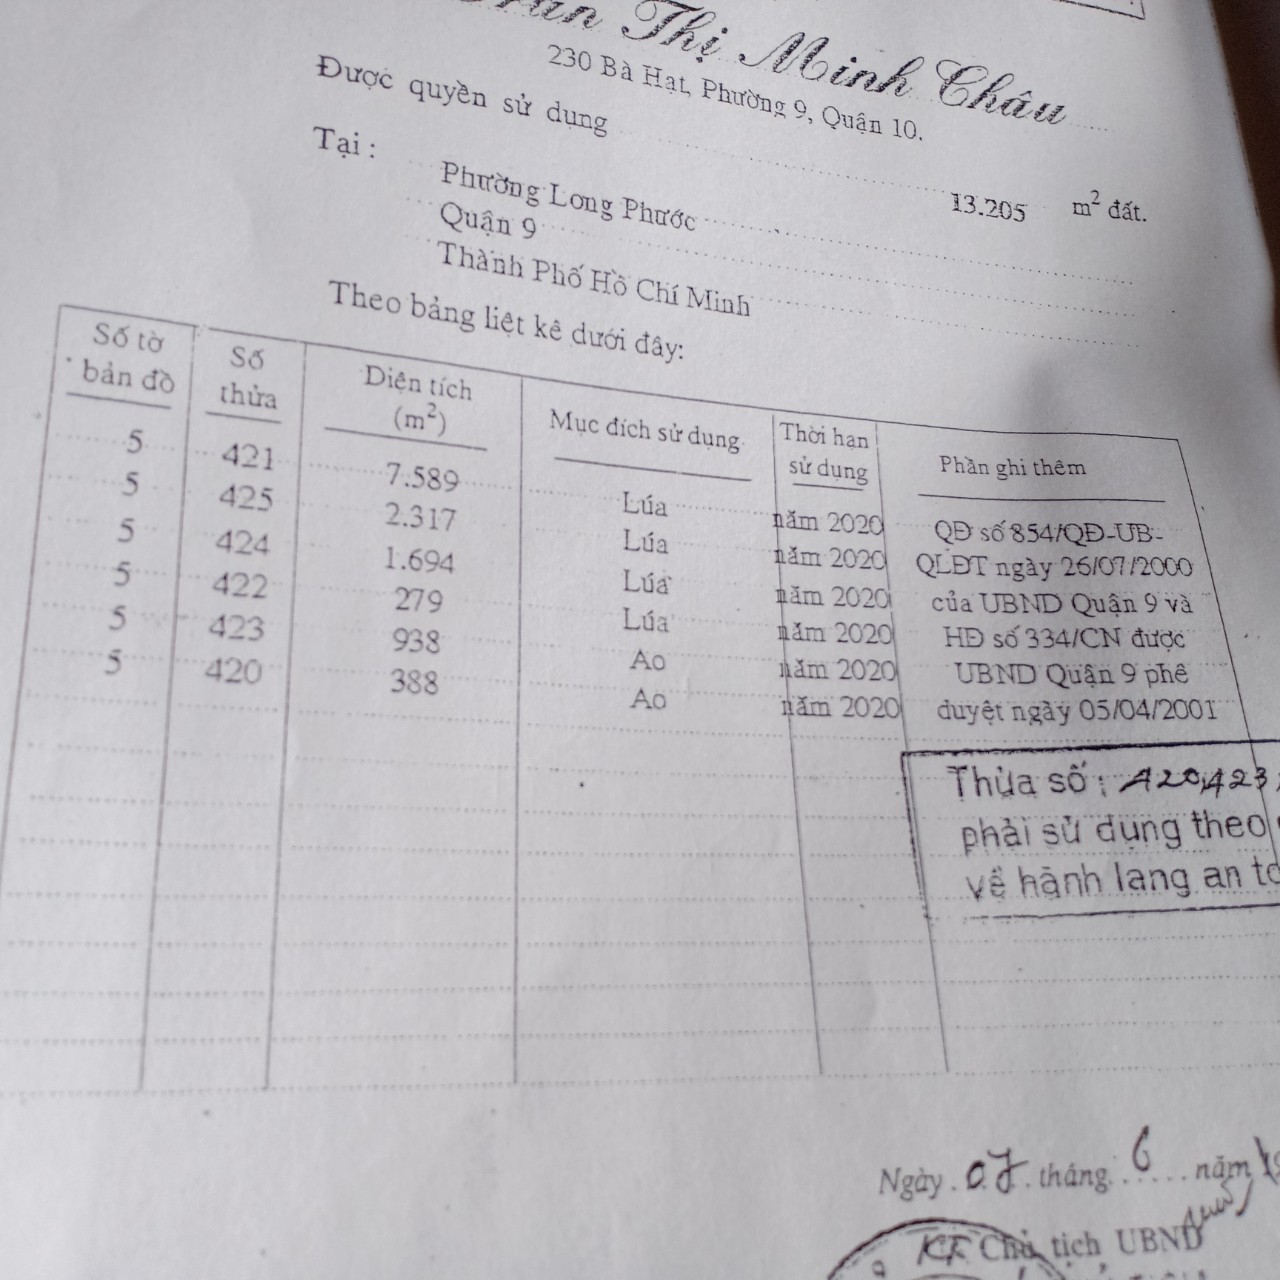 Trần Thị Minh Châu
230 Bà Hạt, Phường 9, Quận 10.
Được quyền sử dụng 13.205 m² đất.
Tại : Phường Long Phước
Quận 9
Thành Phố Hồ Chí Minh
Theo bảng liệt kê dưới đây:
Số tờ bản đồ Số thửa Diện tích (m²) Mục đích sử dụng Thời hạn sử dụng Phần ghi thêm
5 421 7.589 Lúa năm 2020 QĐ số 854/QĐ-UB-
5 425 2.317 Lúa năm 2020 QLĐT ngày 26/07/2000
5 424 1.694 Lúa năm 2020 của UBND Quận 9 và
5 422 279 Lúa năm 2020 HĐ số 334/CN được
5 423 938 Ao năm 2020 UBND Quận 9 phê
5 420 388 Ao năm 2020 duyệt ngày 05/04/2001
Thửa số : 420,423,
phải sử dụng theo
về hành lang an
Ngày 07 tháng 6 năm
KT Chủ tịch UBND